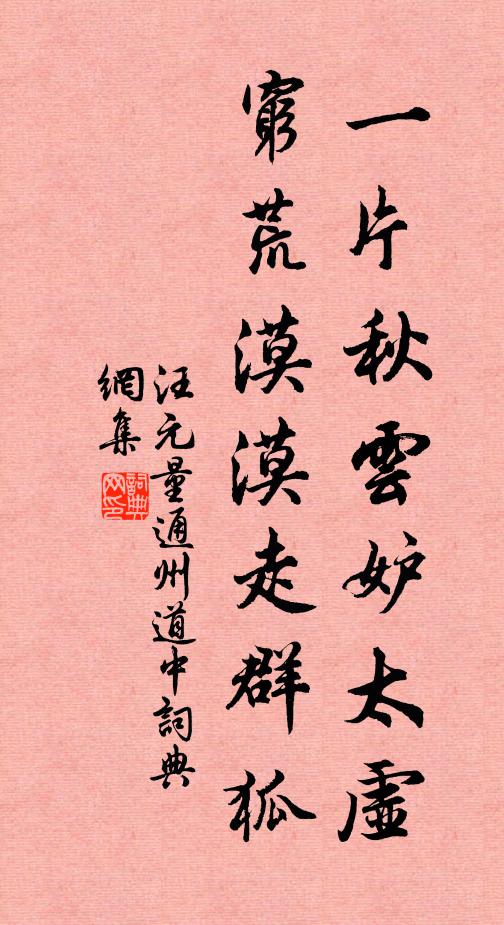 一片秋雲妒太虛
窮荒漠漠走群狐
汪元量通州道中詞典
網集
詞典网印